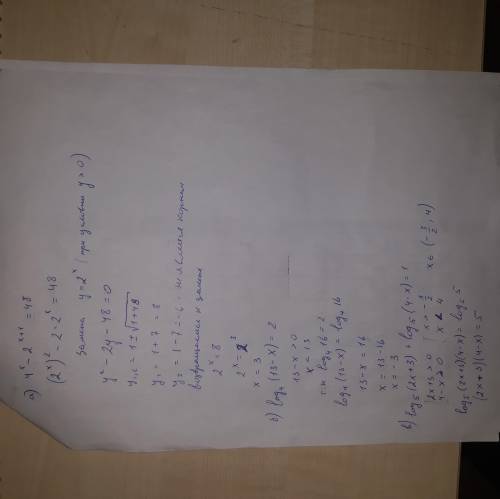 а) 4^x - 2^{x+1} = 48
(2^x)^2 - 2·2^x = 48
Замена y = 2^x (при условии y > 0)
y^2 - 2y - 48 = 0
y_{1,2} = 1 ± √1+48
y_1 = 1 + 7 = 8
y_2 = 1 - 7 = -6 - не является корнем
возвращаемся к замене
2^x = 8
2^x = 2^3
x = 3
б) log_4 (13-x) = 2
13 - x > 0
x < 13
т.к log_4 16 = 2
log_4 (13-x) = log_4 16
13 - x = 16
x = 13 - 16
x = -3
в) log_5 (2x+3) + log_5 (4-x) = 1
2x+3 > 0 x > -3/2
4-x > 0 x < 4 x ∈ (-3/2; 4)
log_5 (2x+3)(4-x) = log_5 5
(2x+3)(4-x) = 5